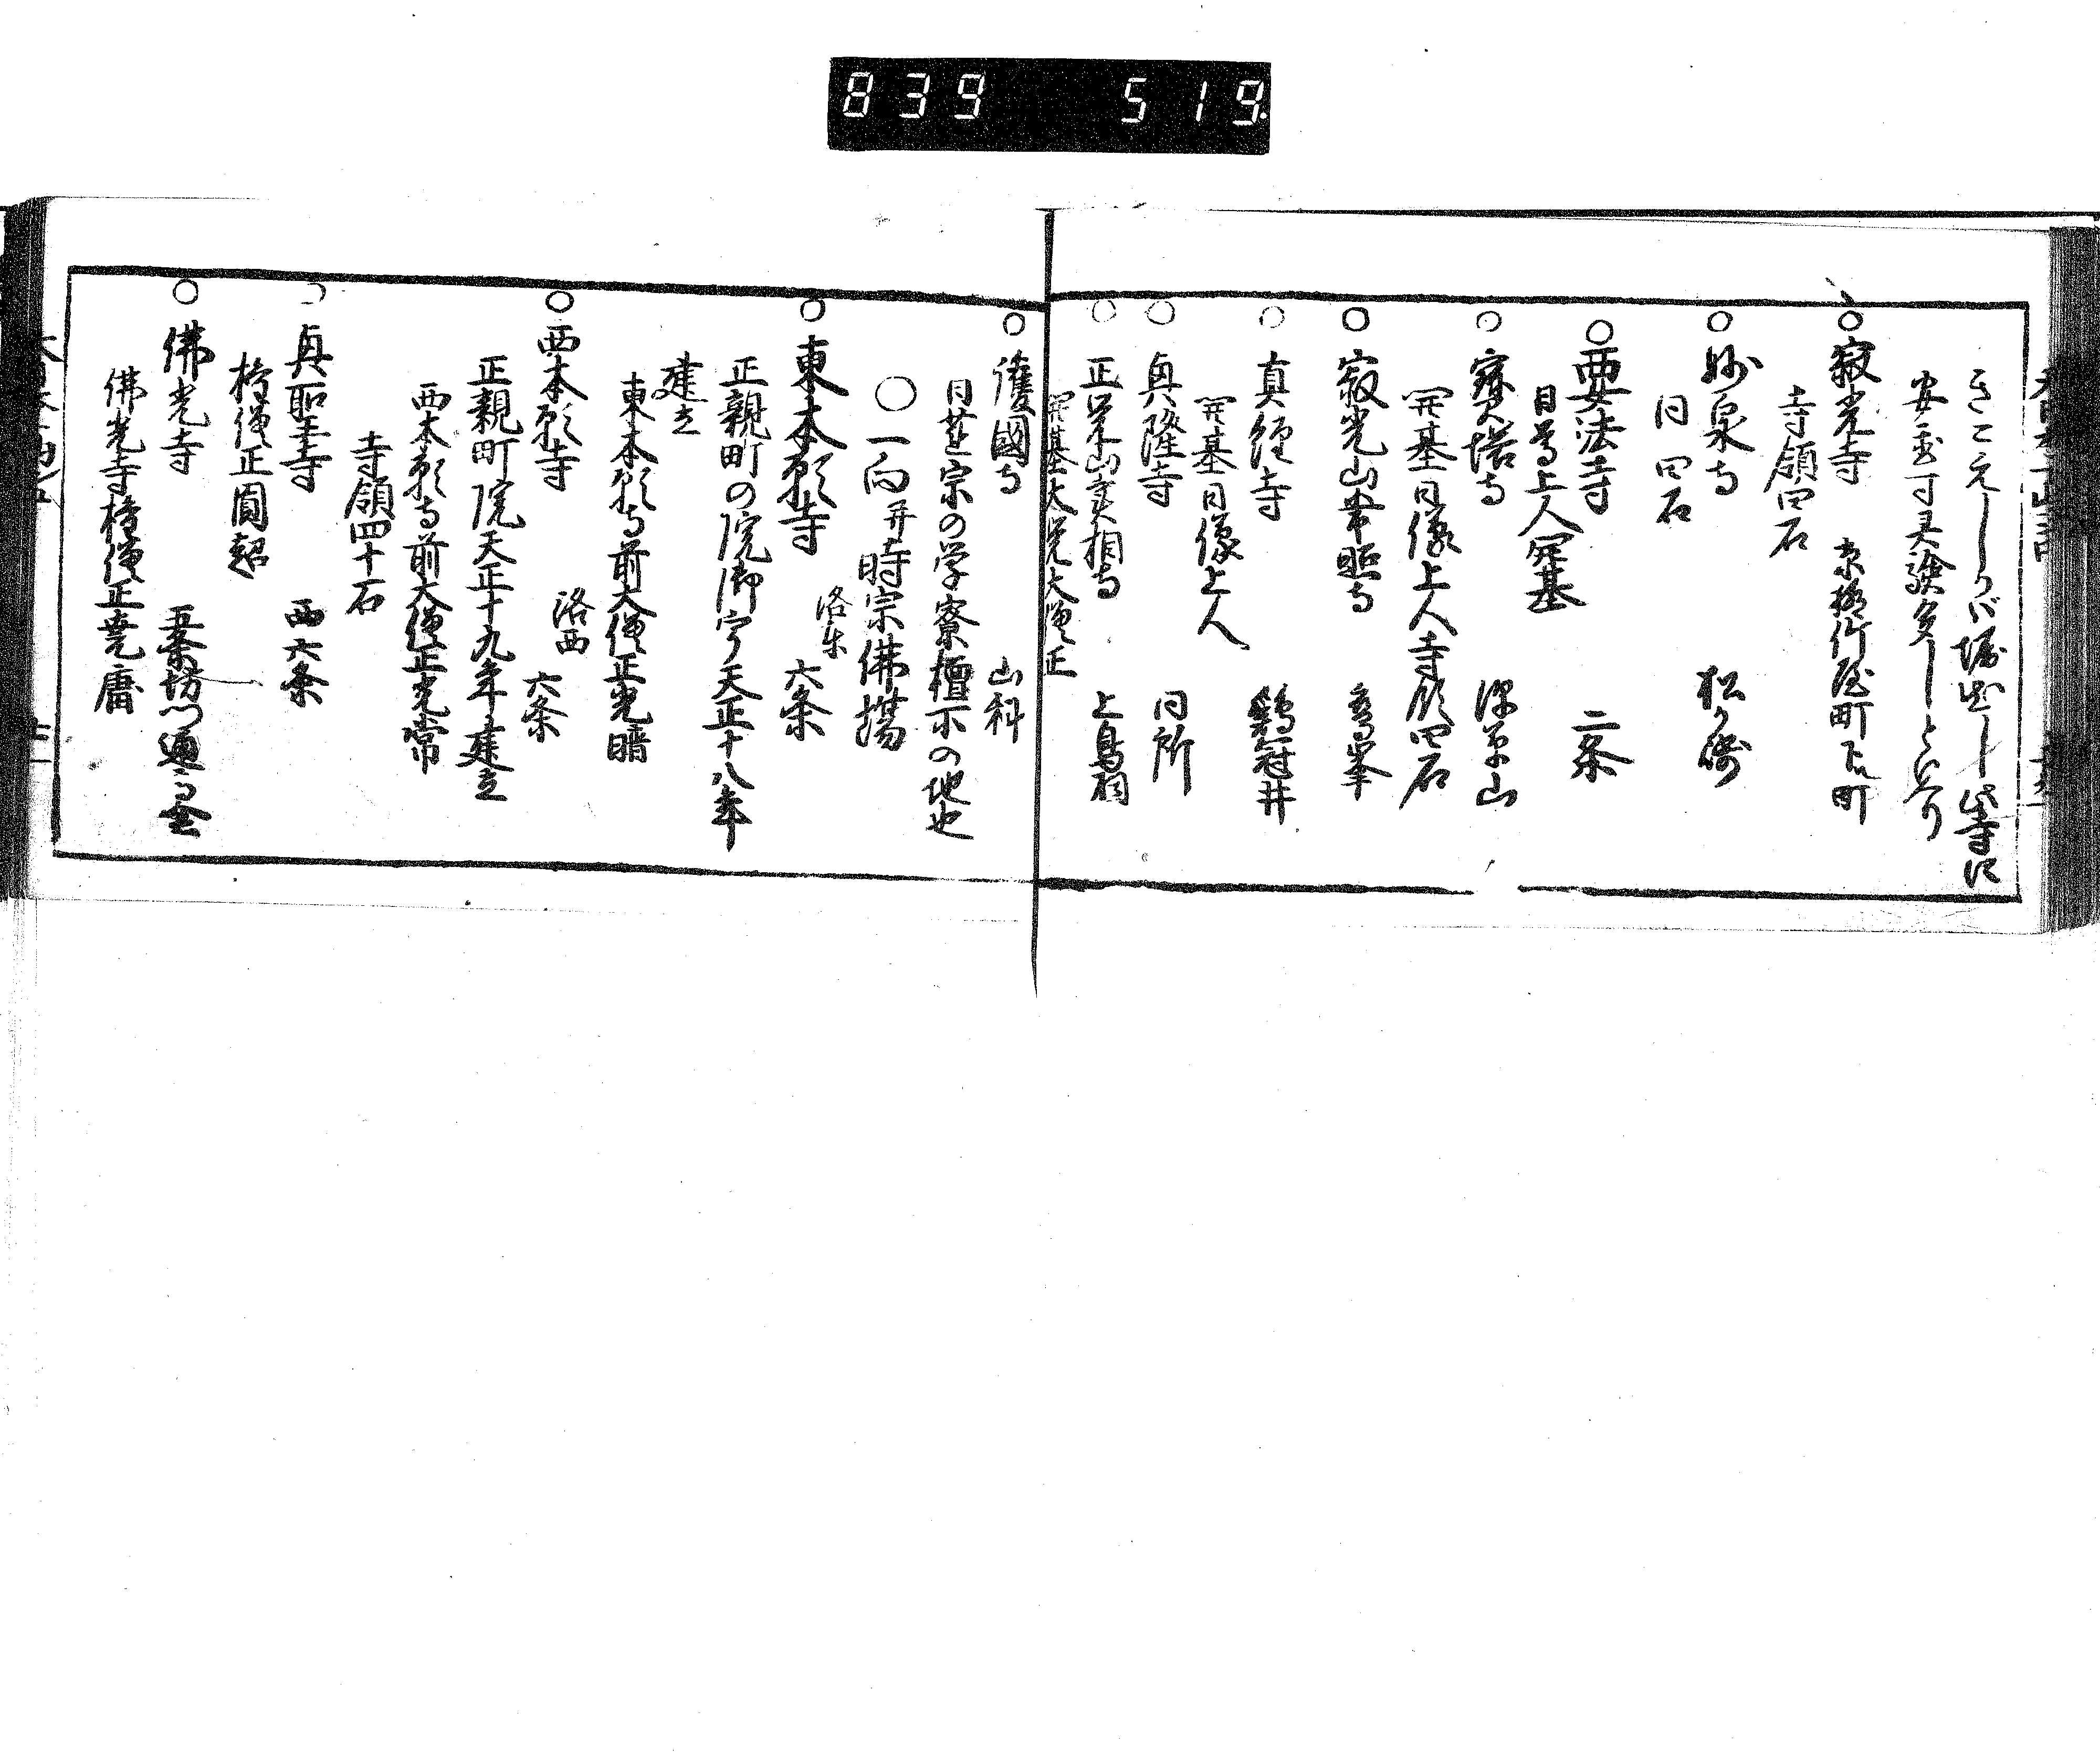 839 519
きこえしかバ堀出し此寺に
安置す其験多しと云り
○寂光寺 京極竹屋町下ル町
寺領四石
○妙泉寺 松ケ崎
同四石
○要法寺 二条
日尊上人開基
○寳塔寺 深草山
開基日像上人寺領四石
○寂光山常照寺 鷹峯
○真経寺 鶏冠井
開基日像上人
○真隆寺 同所
○正栄山実相寺 上鳥羽
開基大覚大僧正
○護國寺 山科
日蓮宗の学寮檀示の地也
○一向并時宗佛場
○東本願寺 洛東六条
正親町の院御宇天正十八年
建立
東本願寺前大僧正光晴
○西本願寺 洛西六条
正親町院天正十九年建立
西本願寺前大僧正光常
寺領四十石
○真聖寺 西六条
権僧正圓超
○佛光寺 五条坊門通高倉
佛光寺権僧正尭庸